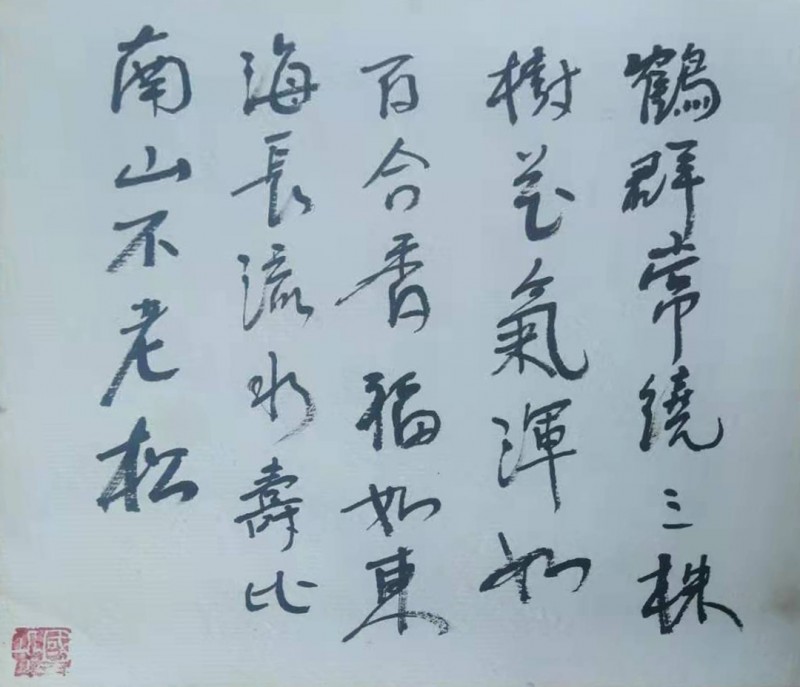 鶴群常繞三株
樹花氣渾如
百合香福如東
海長流水壽比
南山不老松